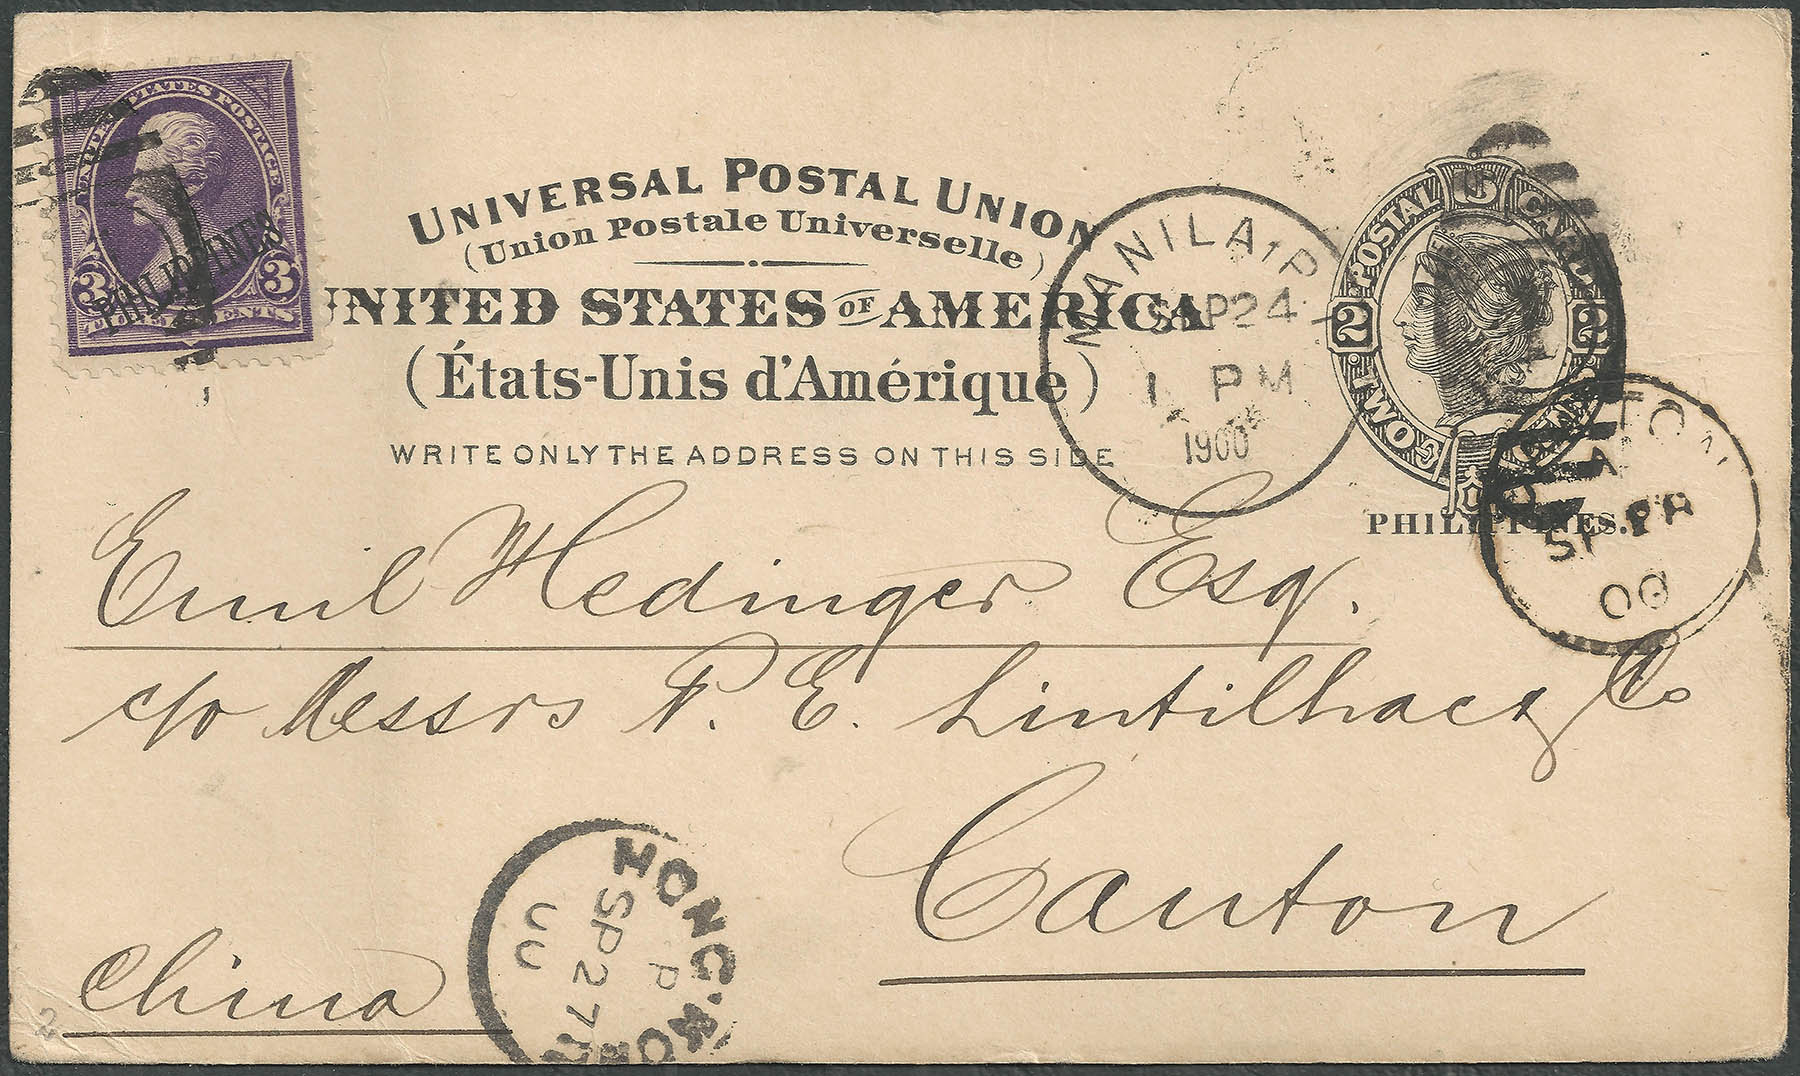 UNITED STATES POSTAGE
PHILIPPINES
3 3
THREE CENTS
UNIVERSAL POSTAL UNION
(Union Postale Universelle)
UNITED STATES OF AMERICA
(États-Unis d'Amérique)
WRITE ONLY THE ADDRESS ON THIS SIDE
MANILA, P. I.
SEP 24
1 PM
1900
POSTAL CARD
U S
2 2
TWO CENTS
PHILIPPINES.
CANTON
A
SP
00
Emil Hedinger Esq.
c/o Messrs P. E. Lintilhac & Co
Canton
China
HONG-KONG
P
SP 27
00
2